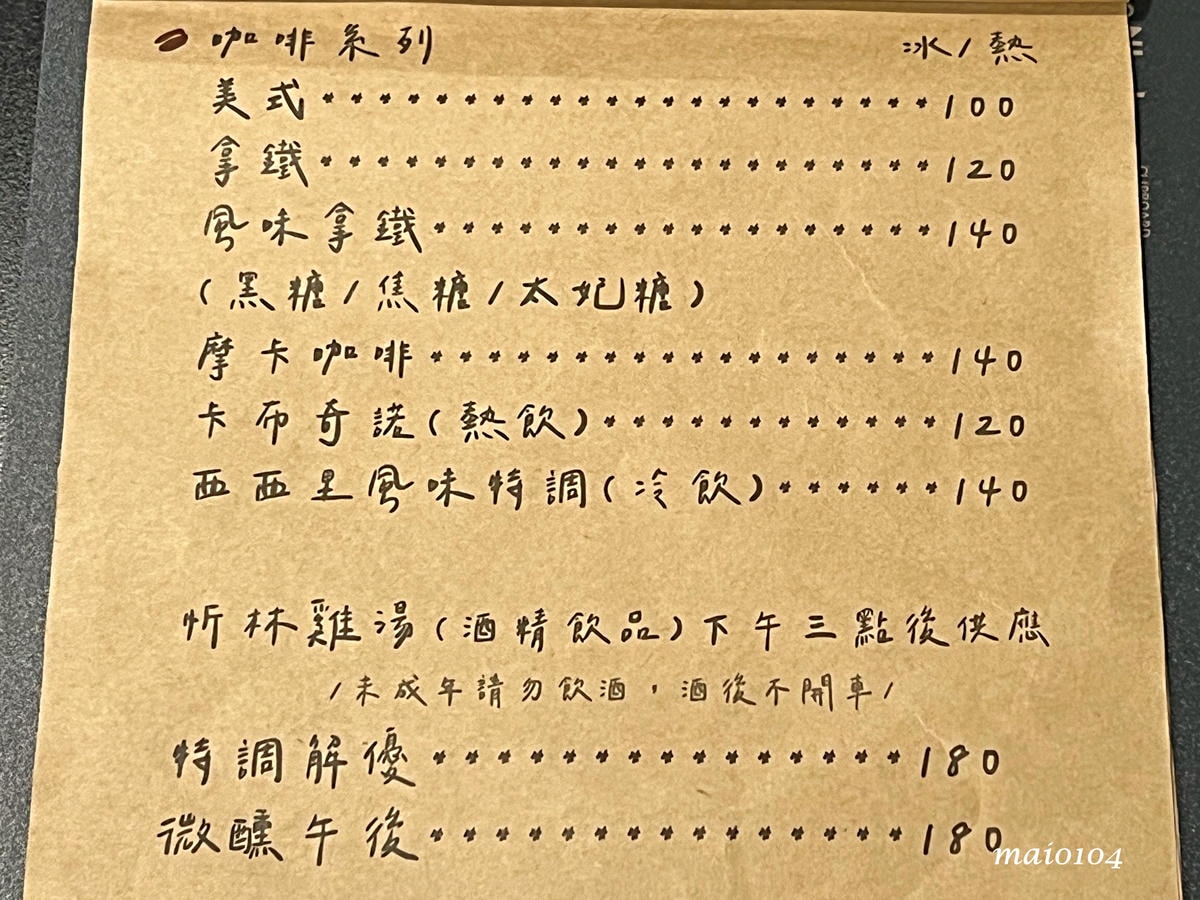 咖啡系列 冰/熱
美式 100
拿鐵 120
風味拿鐵 140
(黑糖/焦糖/太妃糖)
摩卡咖啡 140
卡布奇諾(熱飲) 120
西西里風味特調(冷飲) 140
忻林雞湯(酒精飲品)下午三點後供應
/未成年請勿飲酒,酒後不開車/
特調解優 180
微醺午後 180
maio104